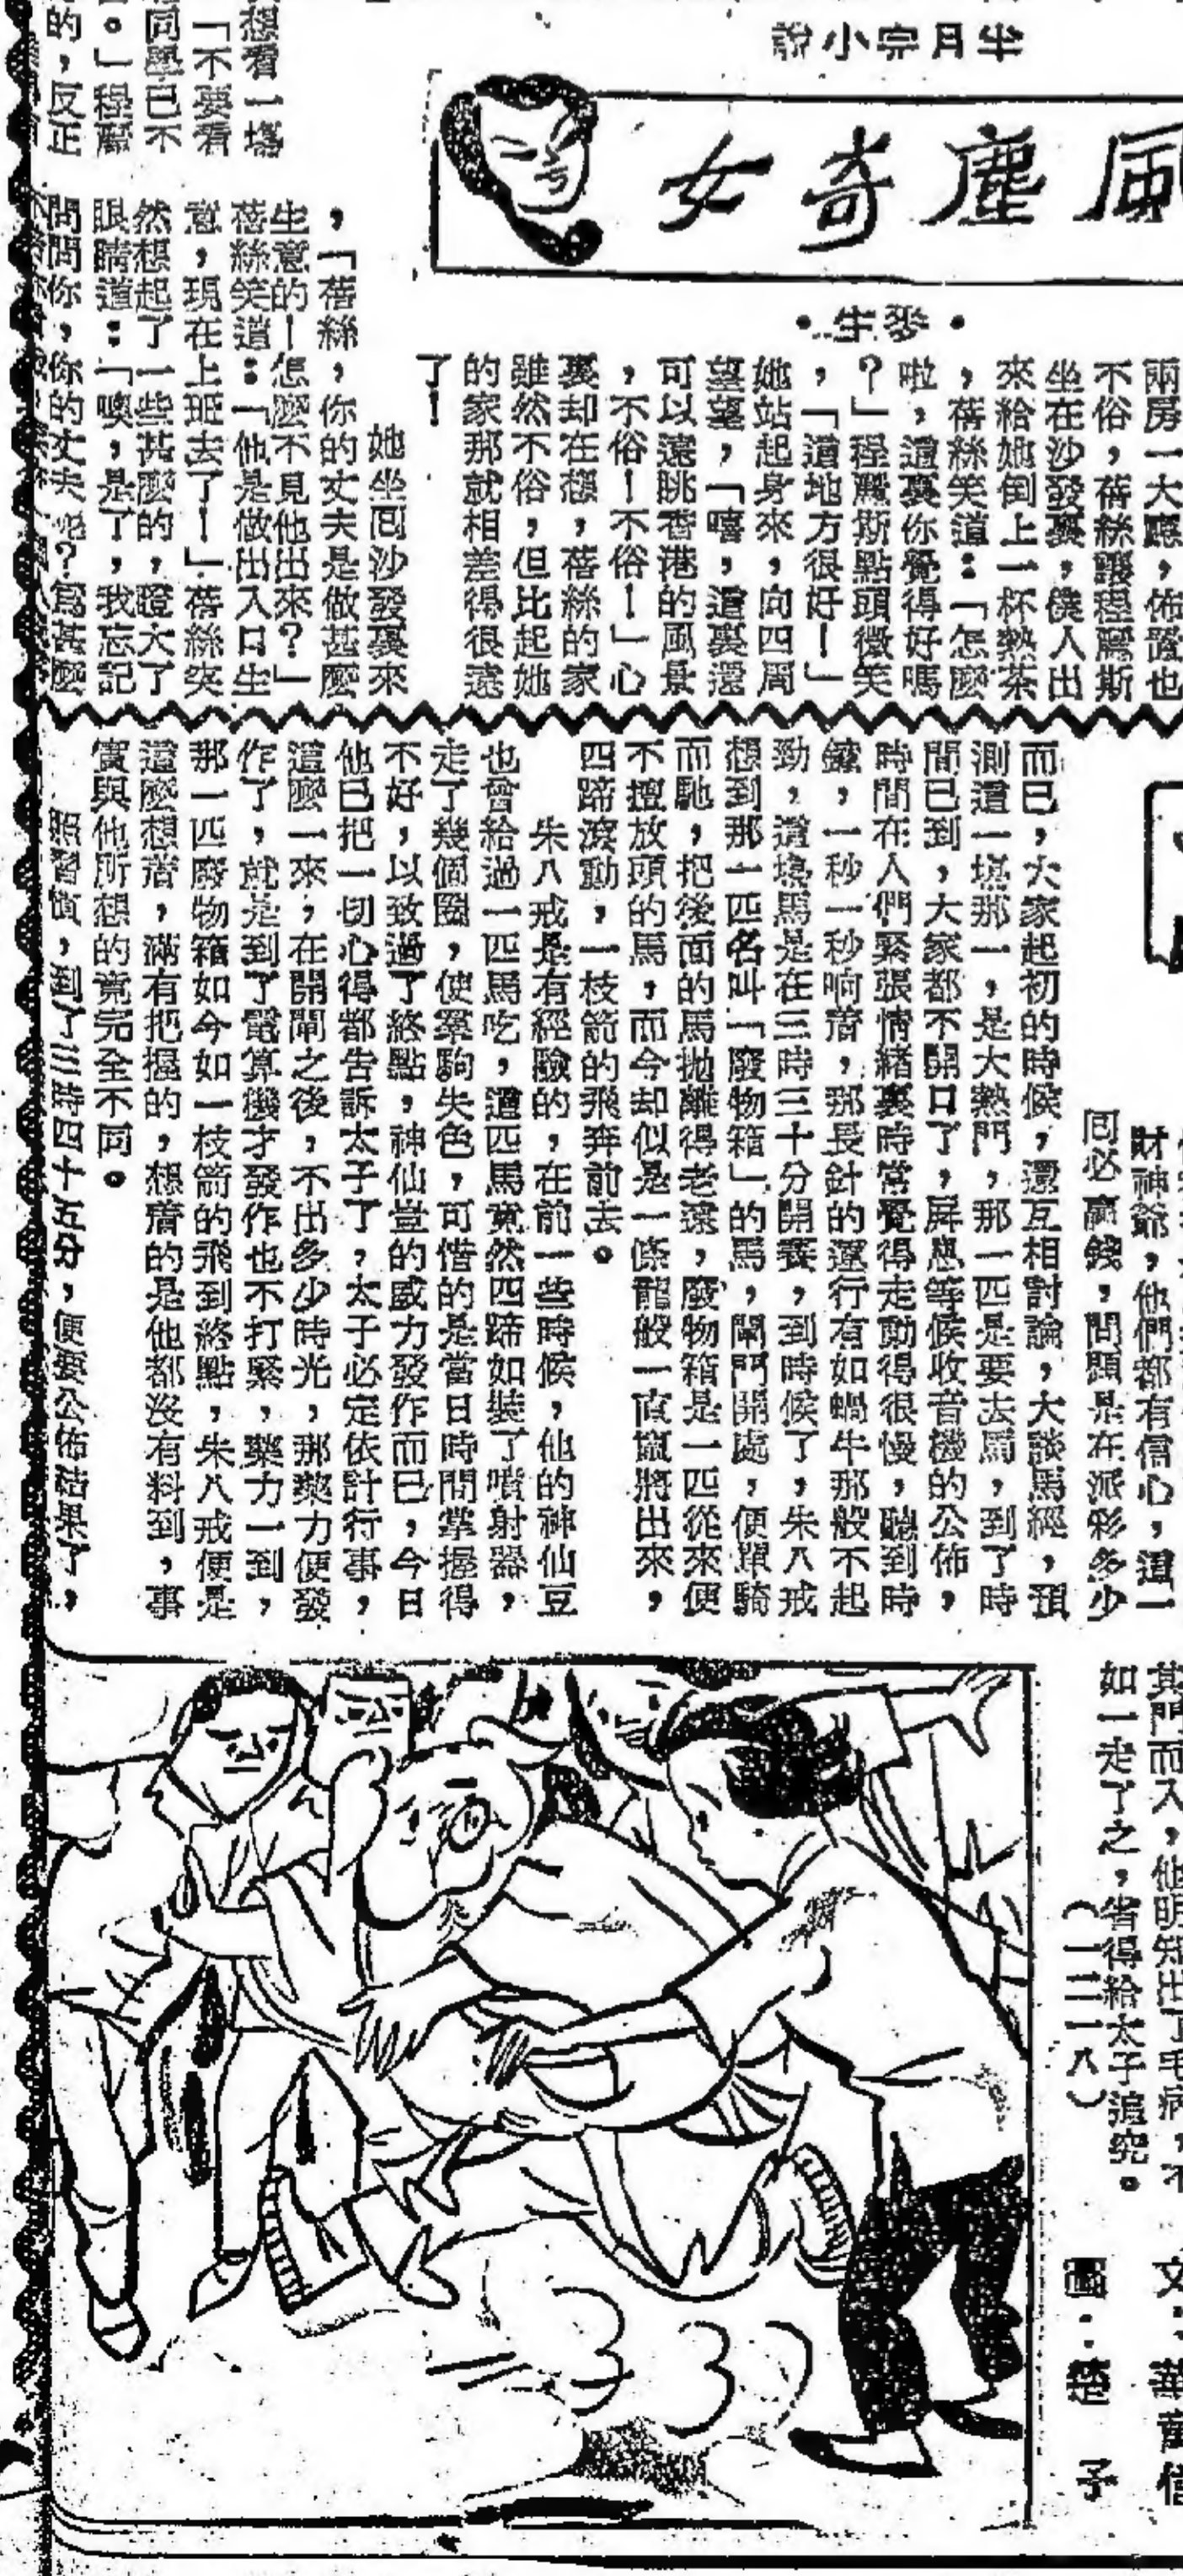 半月完小說
風塵奇女
•麥生•
兩房一大廳，佈置也
不俗，蓓絲讓程麗斯
坐在沙發裏，僕人出
來給她倒上一杯熱茶
，蓓絲笑道：「怎麼
啦，這裏你覺得好嗎
？」程麗斯點頭微笑
，「這地方很好！」
她站起身來，向四周
望望，「嘻，這裏還
可以遠眺香港的風景
，不俗！不俗！」心
裏却在想，蓓絲的家
雖然不俗，但比起她
的家那就相差得很遠
了！
她坐囘沙發裏來
，「蓓絲，你的丈夫是做甚麼
生意的！怎麼不見他出來？」
蓓絲笑道：「他是做出入口生
意，現在上班去了！」蓓絲突
然想起了一些甚麼的，瞪大了
眼睛道：「噢，是了，我忘記
問問你，你的丈夫呢？爲甚麼
想看一場
「不要看
同學已不
。」程麗
的，反正
財神爺，他們都有信心，這一
囘必贏錢，問題是在派彩多少
而已，大家起初的時候，還互相討論，大談馬經，預
測這一塲那一，是大熱門，那一匹是要去馬，到了時
間已到，大家都不開口了，屏息等候收音機的公佈，
時間在人們緊張情緒裏時常覺得走動得很慢，聽到時
鐘，一秒一秒响着，那長針的運行有如蝸牛那般不起
勁，這塲馬是在三時三十分開賽，到時候了，朱八戒
想到那一匹名叫「廢物箱」的馬，閘門開處，便單騎
而馳，把後面的馬拋離得老遠，廢物箱是一匹從來便
不擅放頭的馬，而今却似是一條龍般一直竄將出來，
四蹄滾動，一枝箭的飛奔前去。
朱八戒是有經驗的，在前一些時候，他的神仙豆
也曾給過一匹馬吃，這匹馬竟然四蹄如裝了噴射器，
走了幾個圈，使羣駒失色，可惜的是當日時間掌握得
不好，以致過了終點，神仙豈的威力發作而已，今日
他已把一切心得都告訴太子了，太子必定依計行事，
這麼一來，在開閘之後，不出多少時光，那藥力便發
作了，就是到了電算機才發作也不打緊，藥力一到，
那一匹廢物箱如今如一枝箭的飛到終點，朱八戒便是
這麼想着，滿有把握的，想着的是他都沒有料到，事
實與他所想的竟完全不同。
照習慣，到了三時四十五分，便要公佈結果了，
其門而入，他明知出了毛病，不
如一走了之，省得給太子追究。
（一二一八）
文：華萬信
圖：楚子
3 30